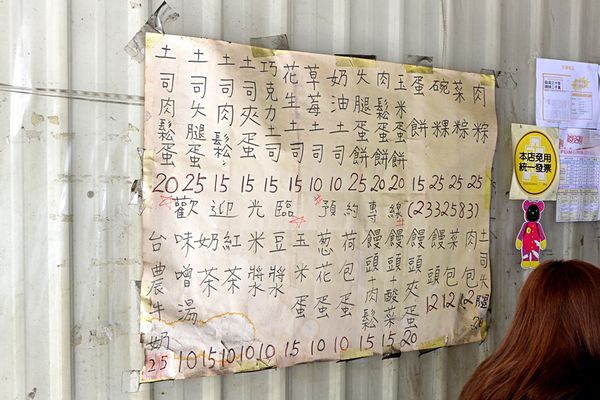 土司肉鬆蛋 20
土司火腿蛋 25
土司肉鬆 15
土司夾蛋 15
巧克力土司 15
花生土司 15
草莓土司 10
奶油土司 10
火腿蛋餅 25
肉鬆蛋餅 20
玉米蛋餅 20
蛋餅 15
碗粿 25
菜粽 25
肉粽 25
歡迎光臨 預約專線 (2332583)
台農牛奶 25
味噌湯 10
奶茶 15
紅茶 10
米漿 10
豆漿 10
玉米蛋 15
蔥花蛋 10
荷包蛋 10
饅頭+肉鬆 15
饅頭+酸菜 15
饅頭夾蛋 20
饅頭 12
菜包 12
肉包 12
土司火腿
本店免用
統一發票